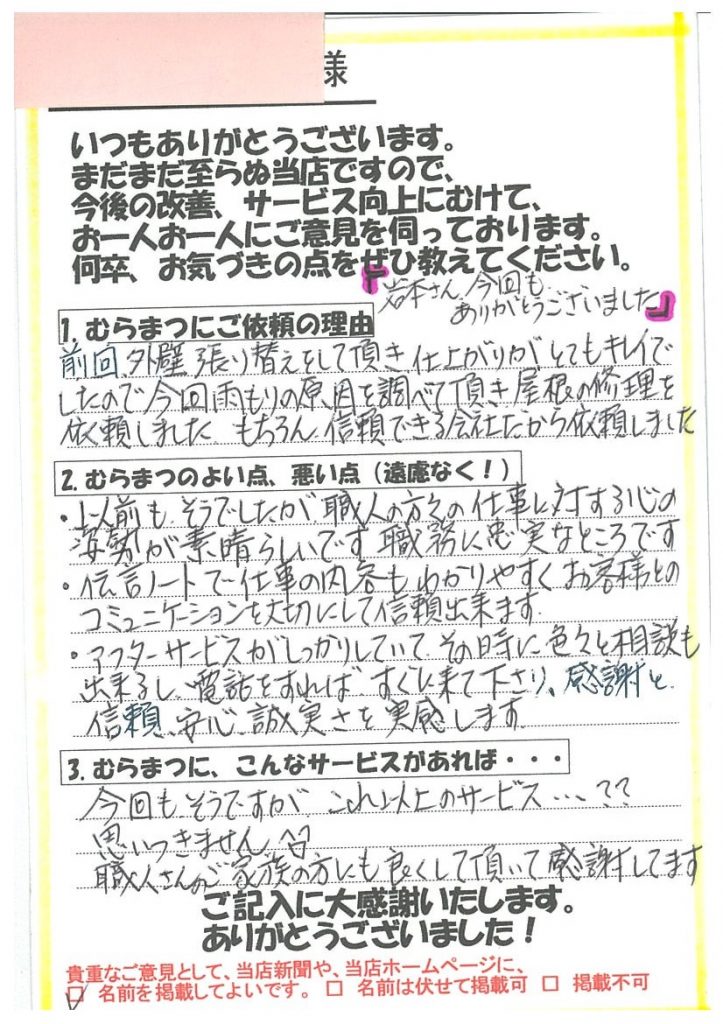 様
いつもありがとうございます。
まだまだ至らぬ当店ですので、
今後の改善、サービス向上にむけて、
お一人お一人にご意見を伺っております。
何卒、お気づきの点をぜひ教えてください。
『岩本さん、今回も
ありがとうございました』
1. むらまつにご依頼の理由
前回、外壁張り替えをして頂き仕上がりがとてもキレイで
したので今回雨もりの原因を調べて頂き屋根の修理を
依頼しました もちろん信頼できる会社だから依頼しました
2. むらまつのよい点、悪い点（遠慮なく！）
・以前も、そうでしたが、職人の方々の仕事に対する心の
姿勢が素晴らしいです 職務に忠実なところです
・伝言ノートで仕事の内容もわかりやすくお客様との
コミュニケーションを大切にして信頼出来ます
・アフターサービスがしっかりしていて、その時に色々と相談も
出来るし、電話をすれば、すぐに来て下さり、感謝と
信頼、安心、誠実さを実感します
3. むらまつに、こんなサービスがあれば・・・
今回も、そうですが、これ以上のサービス…??
思いつきません
職人さんのご家族の方にも良くして頂いて感謝してます
ご記入に大感謝いたします。
ありがとうございました！
貴重なご意見として、当店新聞や、当店ホームページに、
☑ 名前を掲載してよいです。 □ 名前は伏せて掲載可 □ 掲載不可